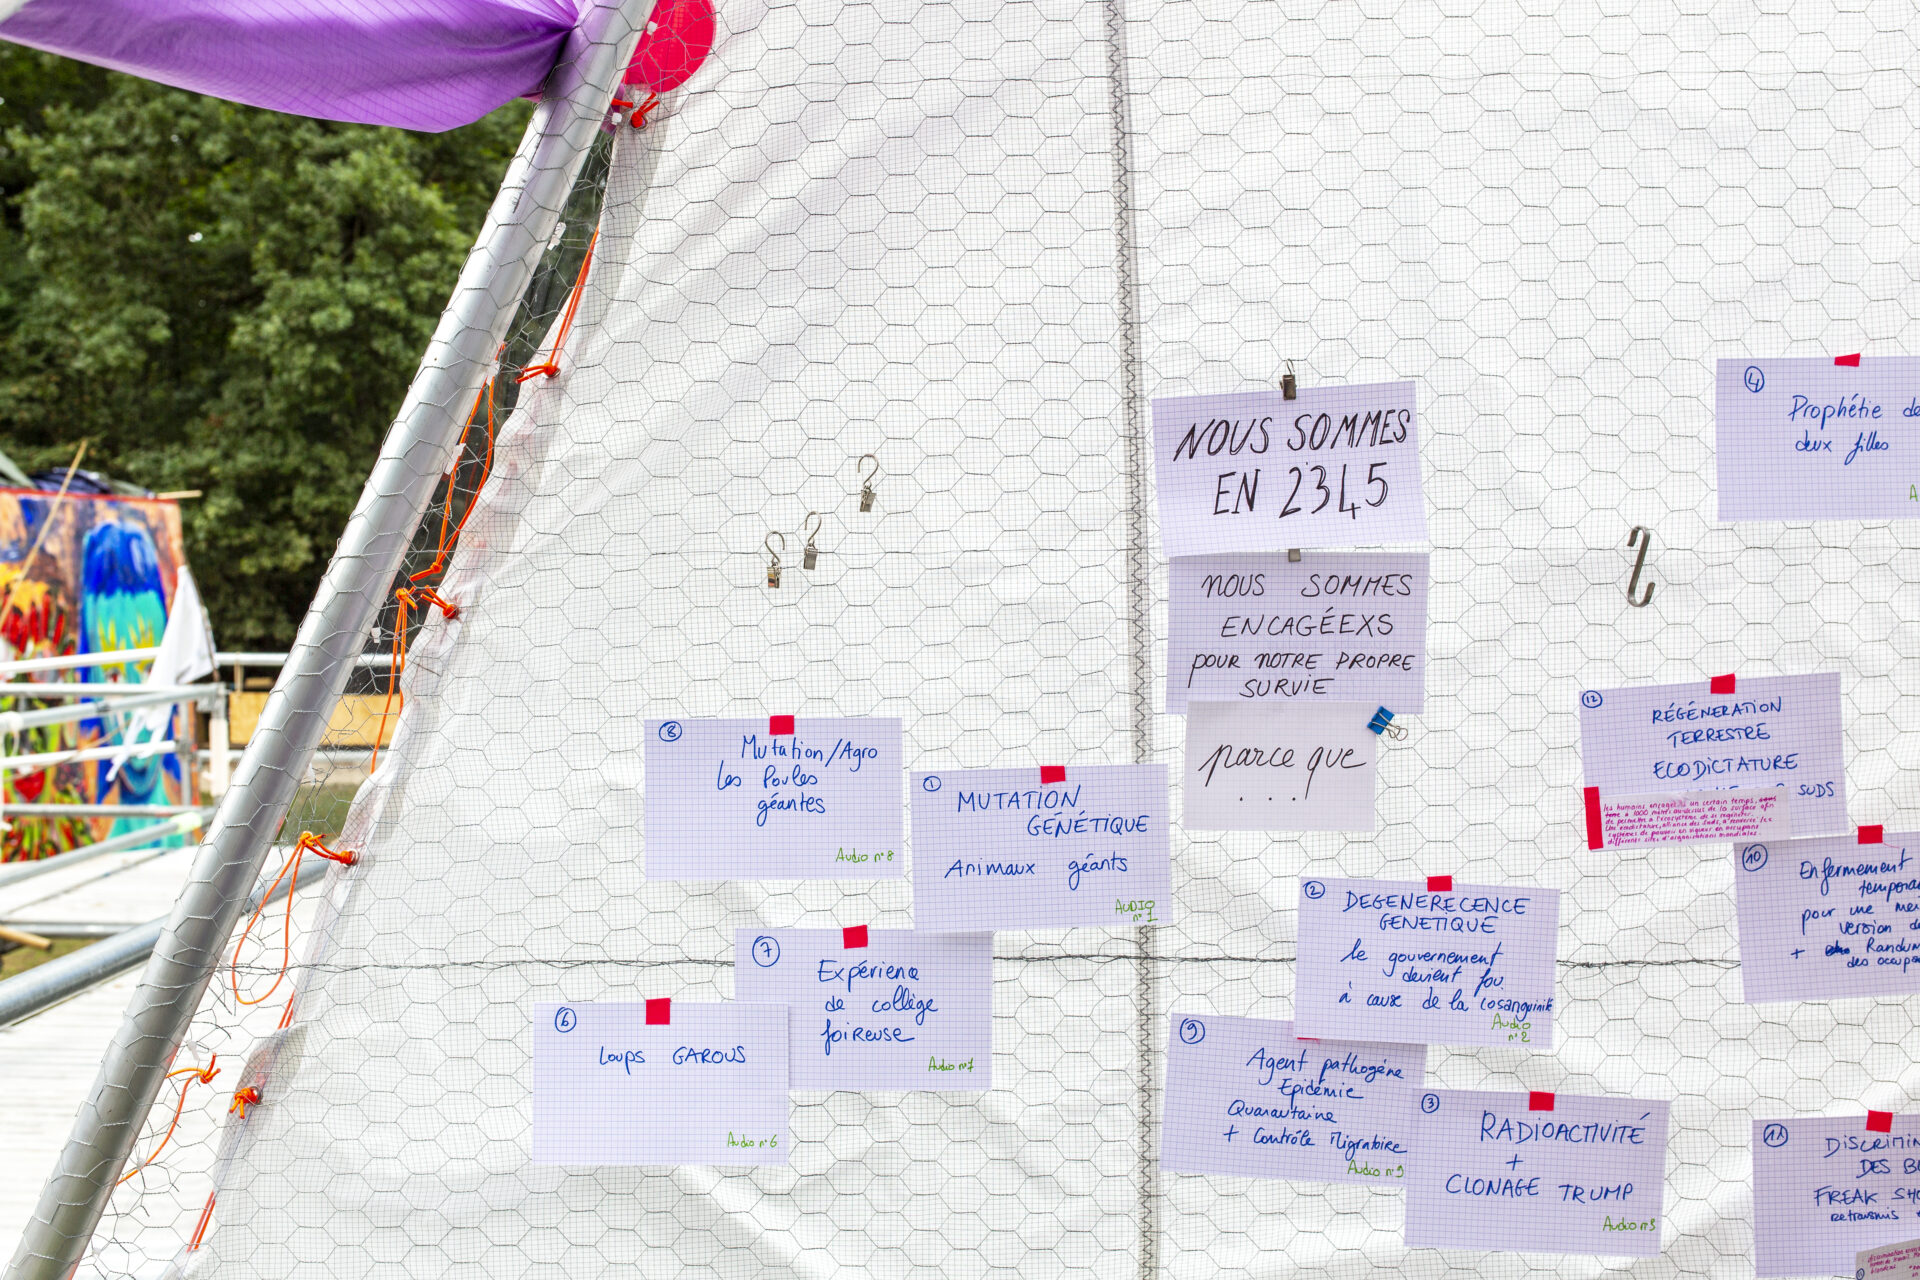 NOUS SOMMES
EN 2345
NOUS SOMMES
ENCAGÉEXS
POUR NOTRE PROPRE
SURVIE
parce que
...
4
Prophétie de
deux filles
A
8
Mutation/Agro
les Poules
géantes
Audio n°8
1
MUTATION
GÉNÉTIQUE
Animaux géants
AUDIO
n°1
12
RÉGÉNERATION
TERRESTRE
ECODICTATURE
SUDS
les humains encagés un certain temps,
à 1000 mètres au dessus de la surface afin
de permettre à l'écosystème de se régénérer.
Une ecodictature, alliance des Suds, a renversé les
systèmes de pouvoir en vigueur en occupant
différents sites d'organisations mondiales.
10
Enfermement
temporai
pour une mei
version de
+ Random
des occupa
2
DEGENERECENCE
GENETIQUE
le gouvernement
devient fou
à cause de la cosanguinité
Audio
n°2
7
Expérience
de collège
foireuse
Audio n°7
6
Loups GAROUS
Audio n°6
9
Agent pathogène
Epidémie
Quarantaine
+ Contrôle Migratoire
Audio n°9
3
RADIOACTIVITÉ
+
CLONAGE TRUMP
Audio n°3
11
DISCRIMIN
DES BU
FREAK SHO
retransmis